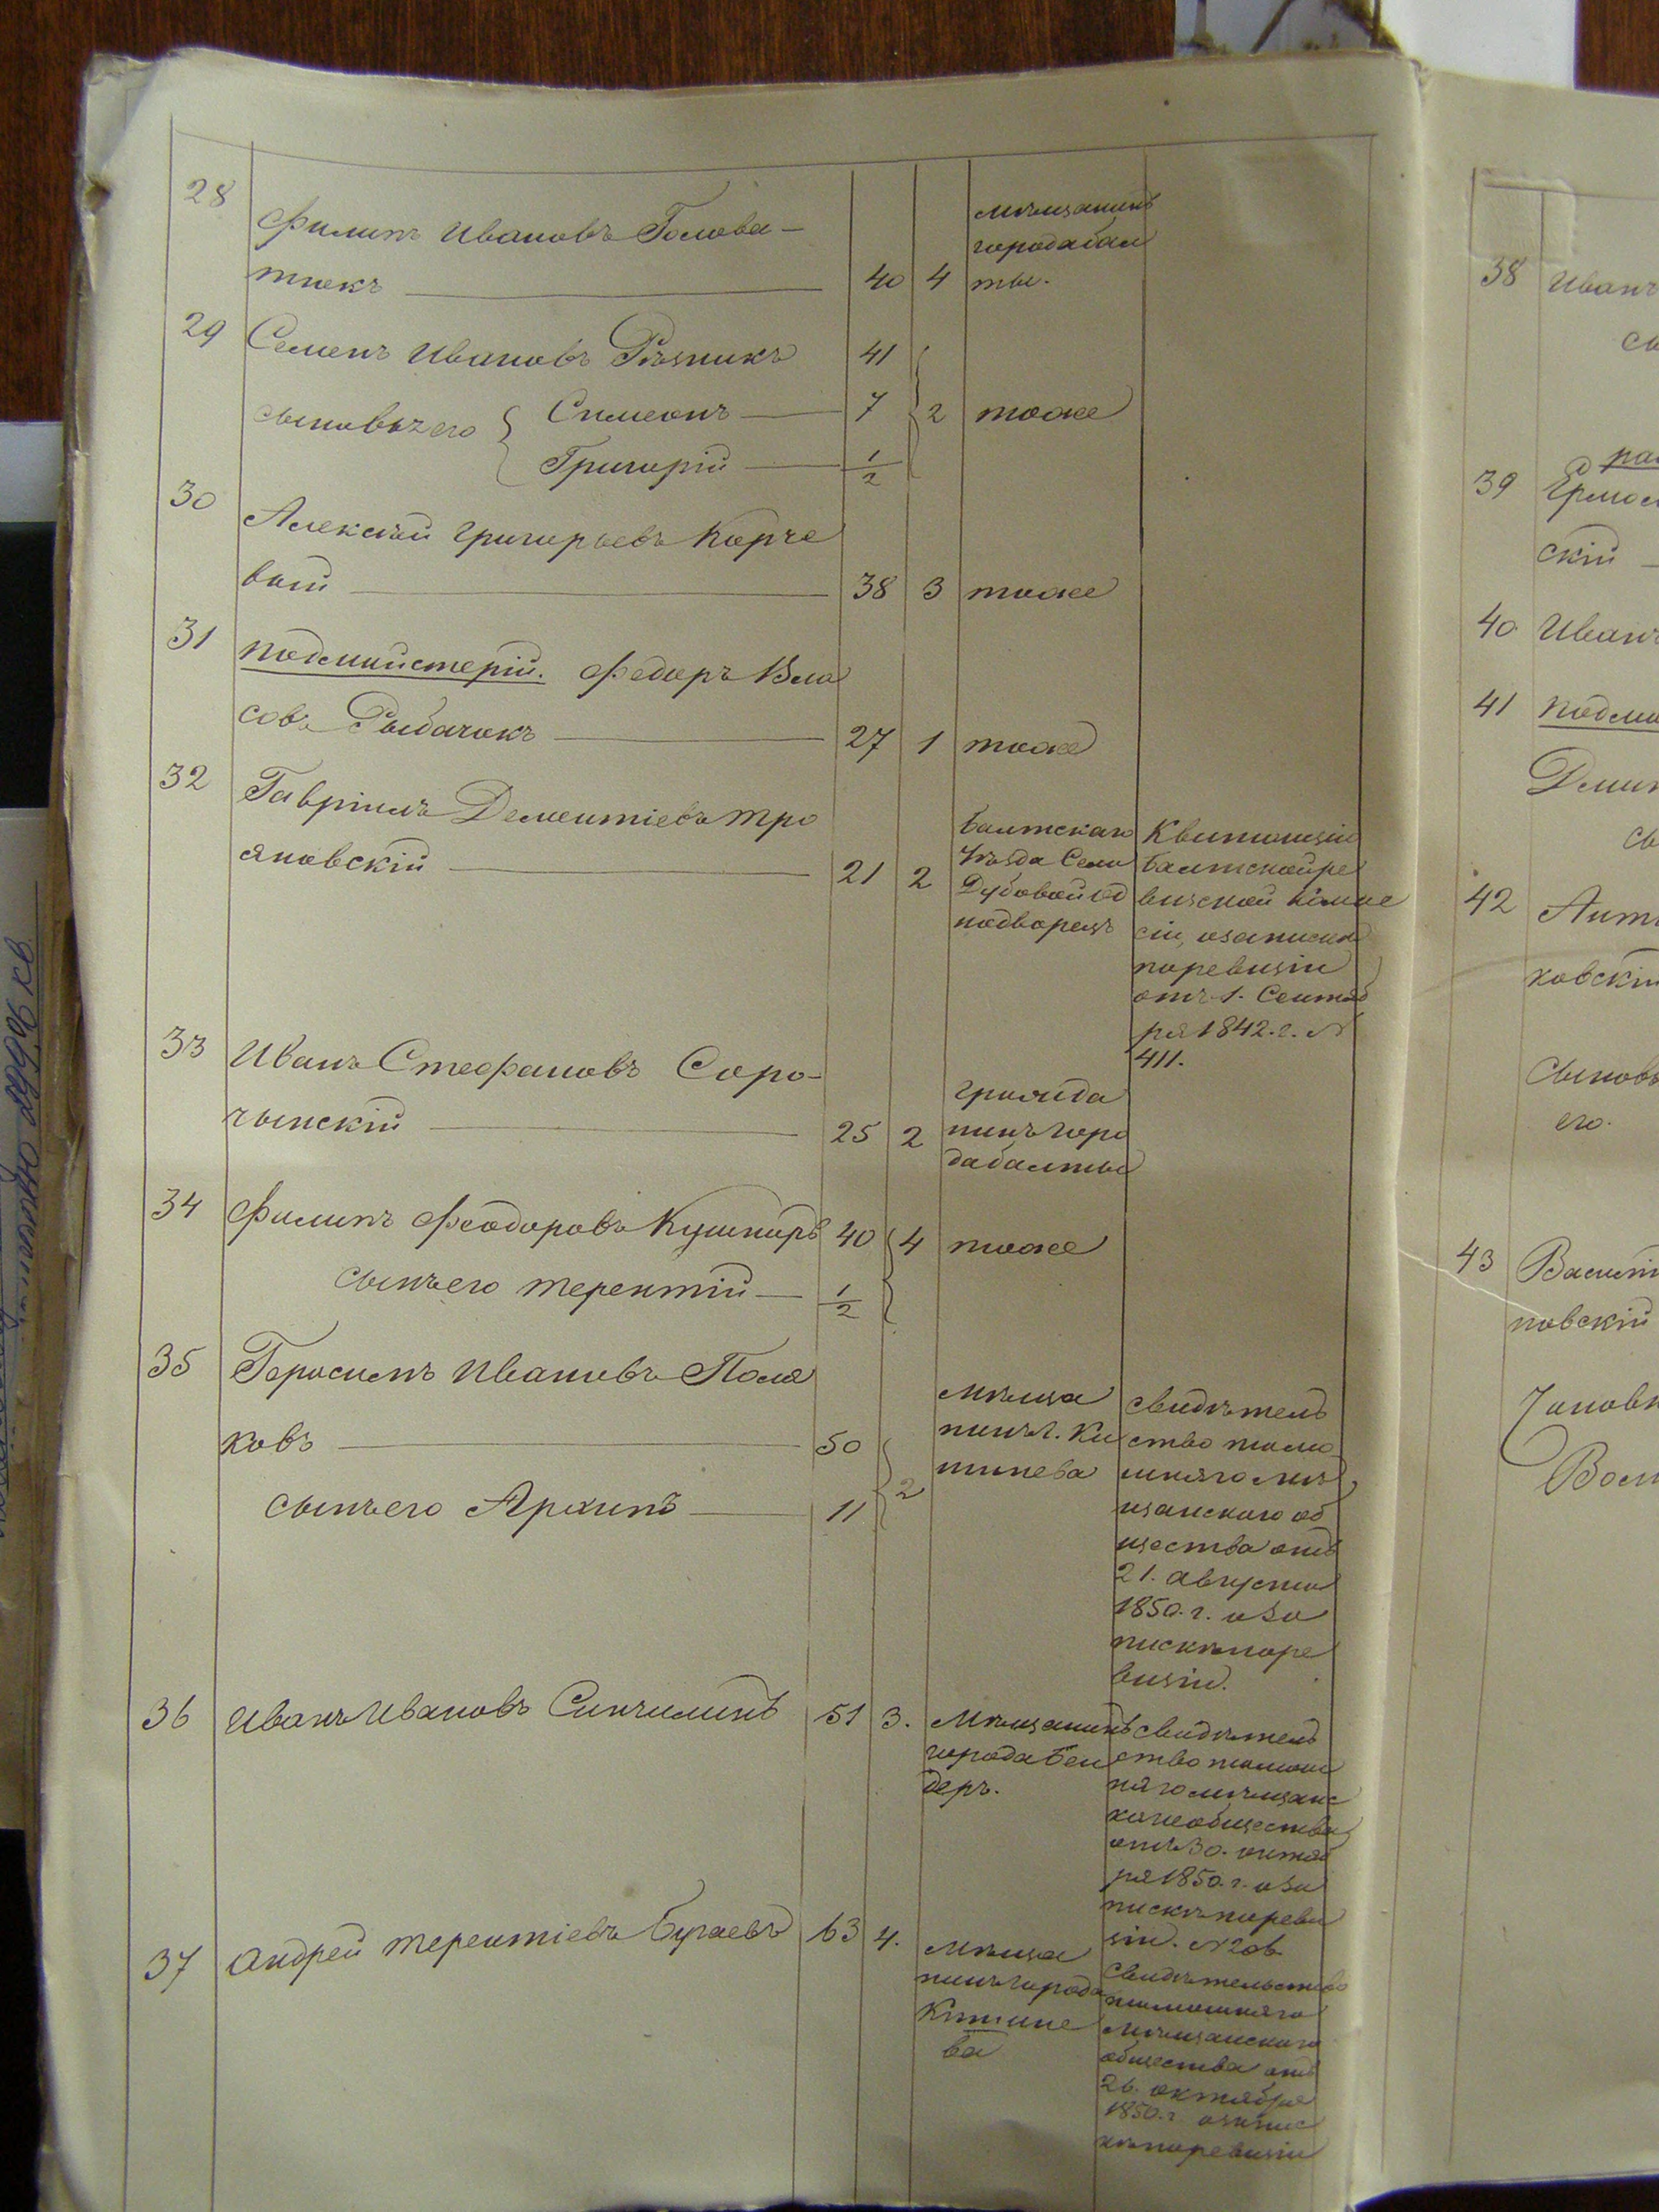 28
Филипъ Ивановъ Голова-
тюкъ 40 4
мѣщанинъ
города Бал
ты.
29 Семенъ Ивановъ Рѣзникъ 41
сыновья его { Симеонъ 7 2 тоже
Григорій 1/2
30
Алексѣй Григорьевъ Корче
вый 38 3 тоже
31 подмайстерій. Федоръ Вла
совъ Рыбачокъ 27 1 тоже
32 Гавріилъ Дементіевъ Тро
яновскій 21 2
Балтскаго
уѣзда Села
Дубовой од
нодворецъ
Квитанція
Балтской ре
визской комме
сіи, о записки
по ревизіи
отъ 1. Сентяб
ря 1842. г. №
411.
33 Иванъ Стефановъ Соро-
чынскій 25 2
гражда
нинъ горо
да Балты
34 Филипъ Феодоровъ Кушниръ 40 4 тоже
сынъ его Терентій 1/2
35 Герасимъ Ивановъ Поля
ковъ 50
сынъ его Архипъ 11 2
Мѣща
нинъ г. Ки
шинева
свидѣтель
ство тамо
шняго мѣ
щанскаго об
щества отъ
21. августа
1850. г. о за
пискѣ по ре
визіи.
36 Иванъ Ивановъ Синчилинъ 51 3.
Мѣщанинъ
города Бен
деръ.
свидѣтель
ство тамош
няго мѣщанс
каго общества
отъ 30. октяб
ря 1850. г. о за
пискѣ по реви
зіи. №206
37 Андрей Терентіевъ Бугаевъ 63 4.
Мѣща
нинъ города
Кишине
ва
свидѣтельство
тамошняго
мѣщанскаго
общества отъ
26. октября
1850. г. о запис
кѣ по ревизіи
38 Иванъ
сы
39
скій
40 Иванъ
41
сы
42
ховскій
Сыновья
его.
43
новскій